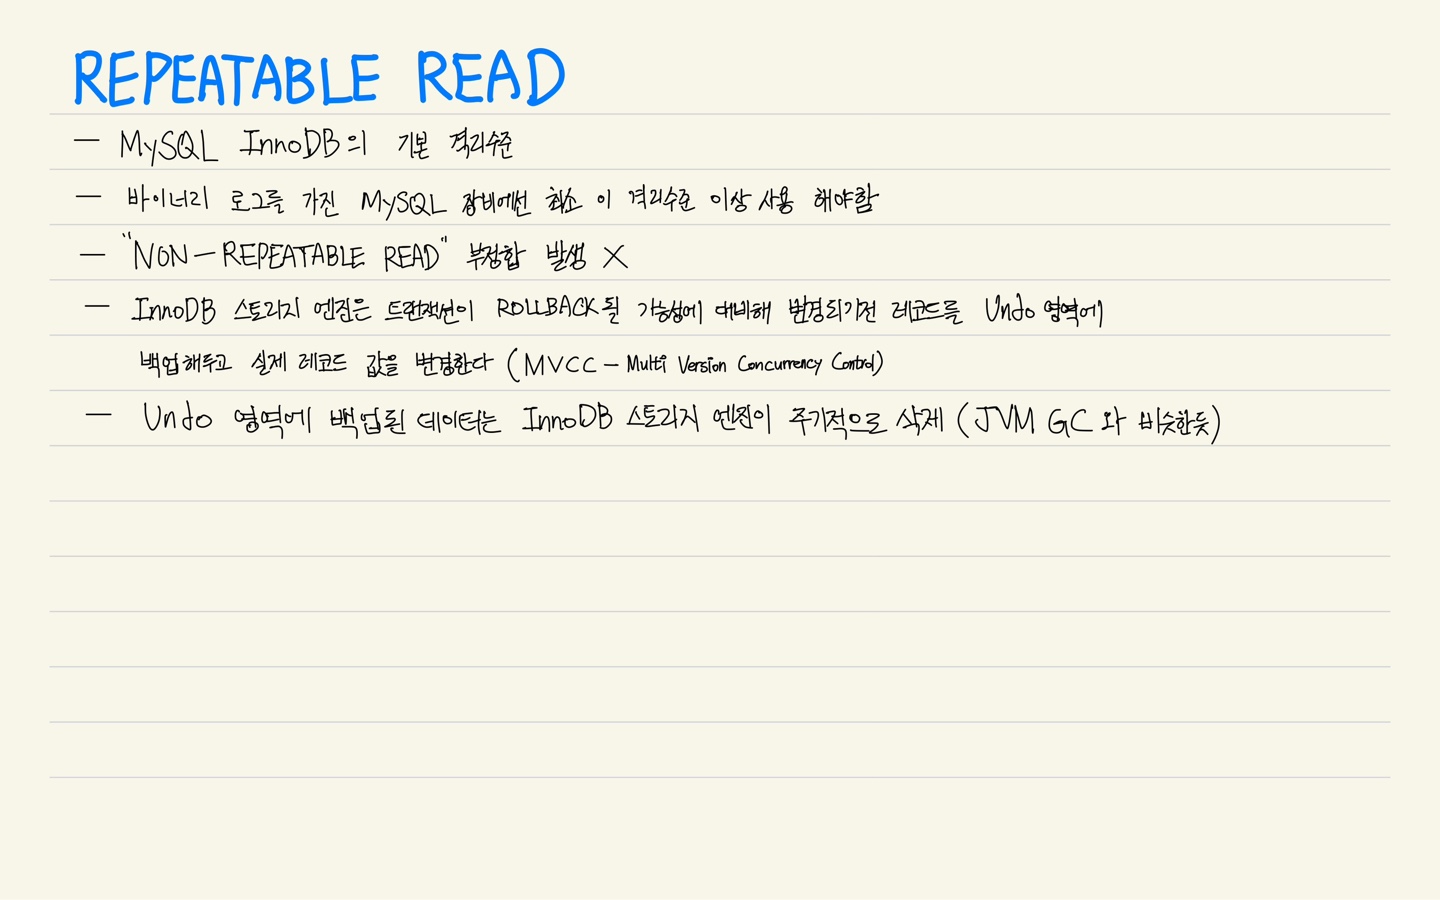 REPEATABLE READ
— MySQL InnoDB의 기본 격리수준
— 바이너리 로그를 가진 MySQL 장비에선 최소 이 격리수준 이상 사용 해야함
— "NON-REPEATABLE READ" 부정합 발생 X
— InnoDB 스토리지 엔진은 트랜잭션이 ROLLBACK될 가능성에 대비해 변경되기전 레코드를 Undo 영역에
백업해두고 실제 레코드 값을 변경한다 (MVCC - Multi Version Concurrency Control)
— Undo 영역에 백업된 데이터는 InnoDB 스토리지 엔진이 주기적으로 삭제 (JVM GC 와 비슷한듯)